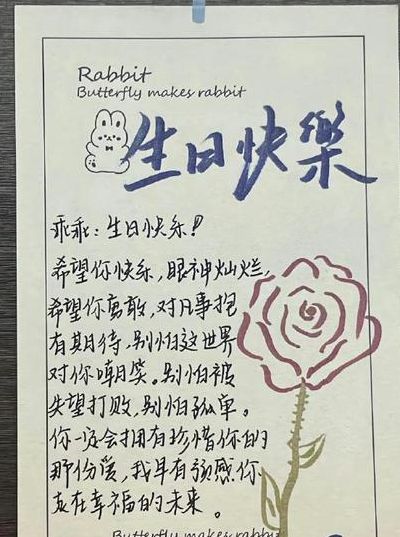 Rabbit
Butterfly makes rabbit
生日快樂
乖乖：生日快乐！
希望你快乐，眼神灿烂，
希望你勇敢，对凡事抱
有期待，别怕这世界
对你嘲笑。别怕被
失望打败，别怕孤单。
你一定会拥有珍惜你的
那份爱，我早有预感你
支在幸福的未来。
Butterfly makes rabbi